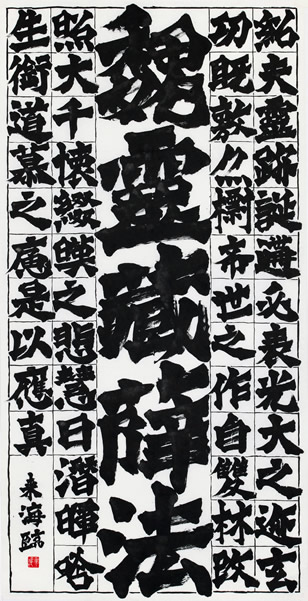 魏靈藏薛法
紹夫靈跡誕遘必表光大之迹玄
功既敷亦標希世之作自雙林改
照大千懷綴暎之悲慧日潛暉唅
生銜道慕之痛是以應真
來海臨